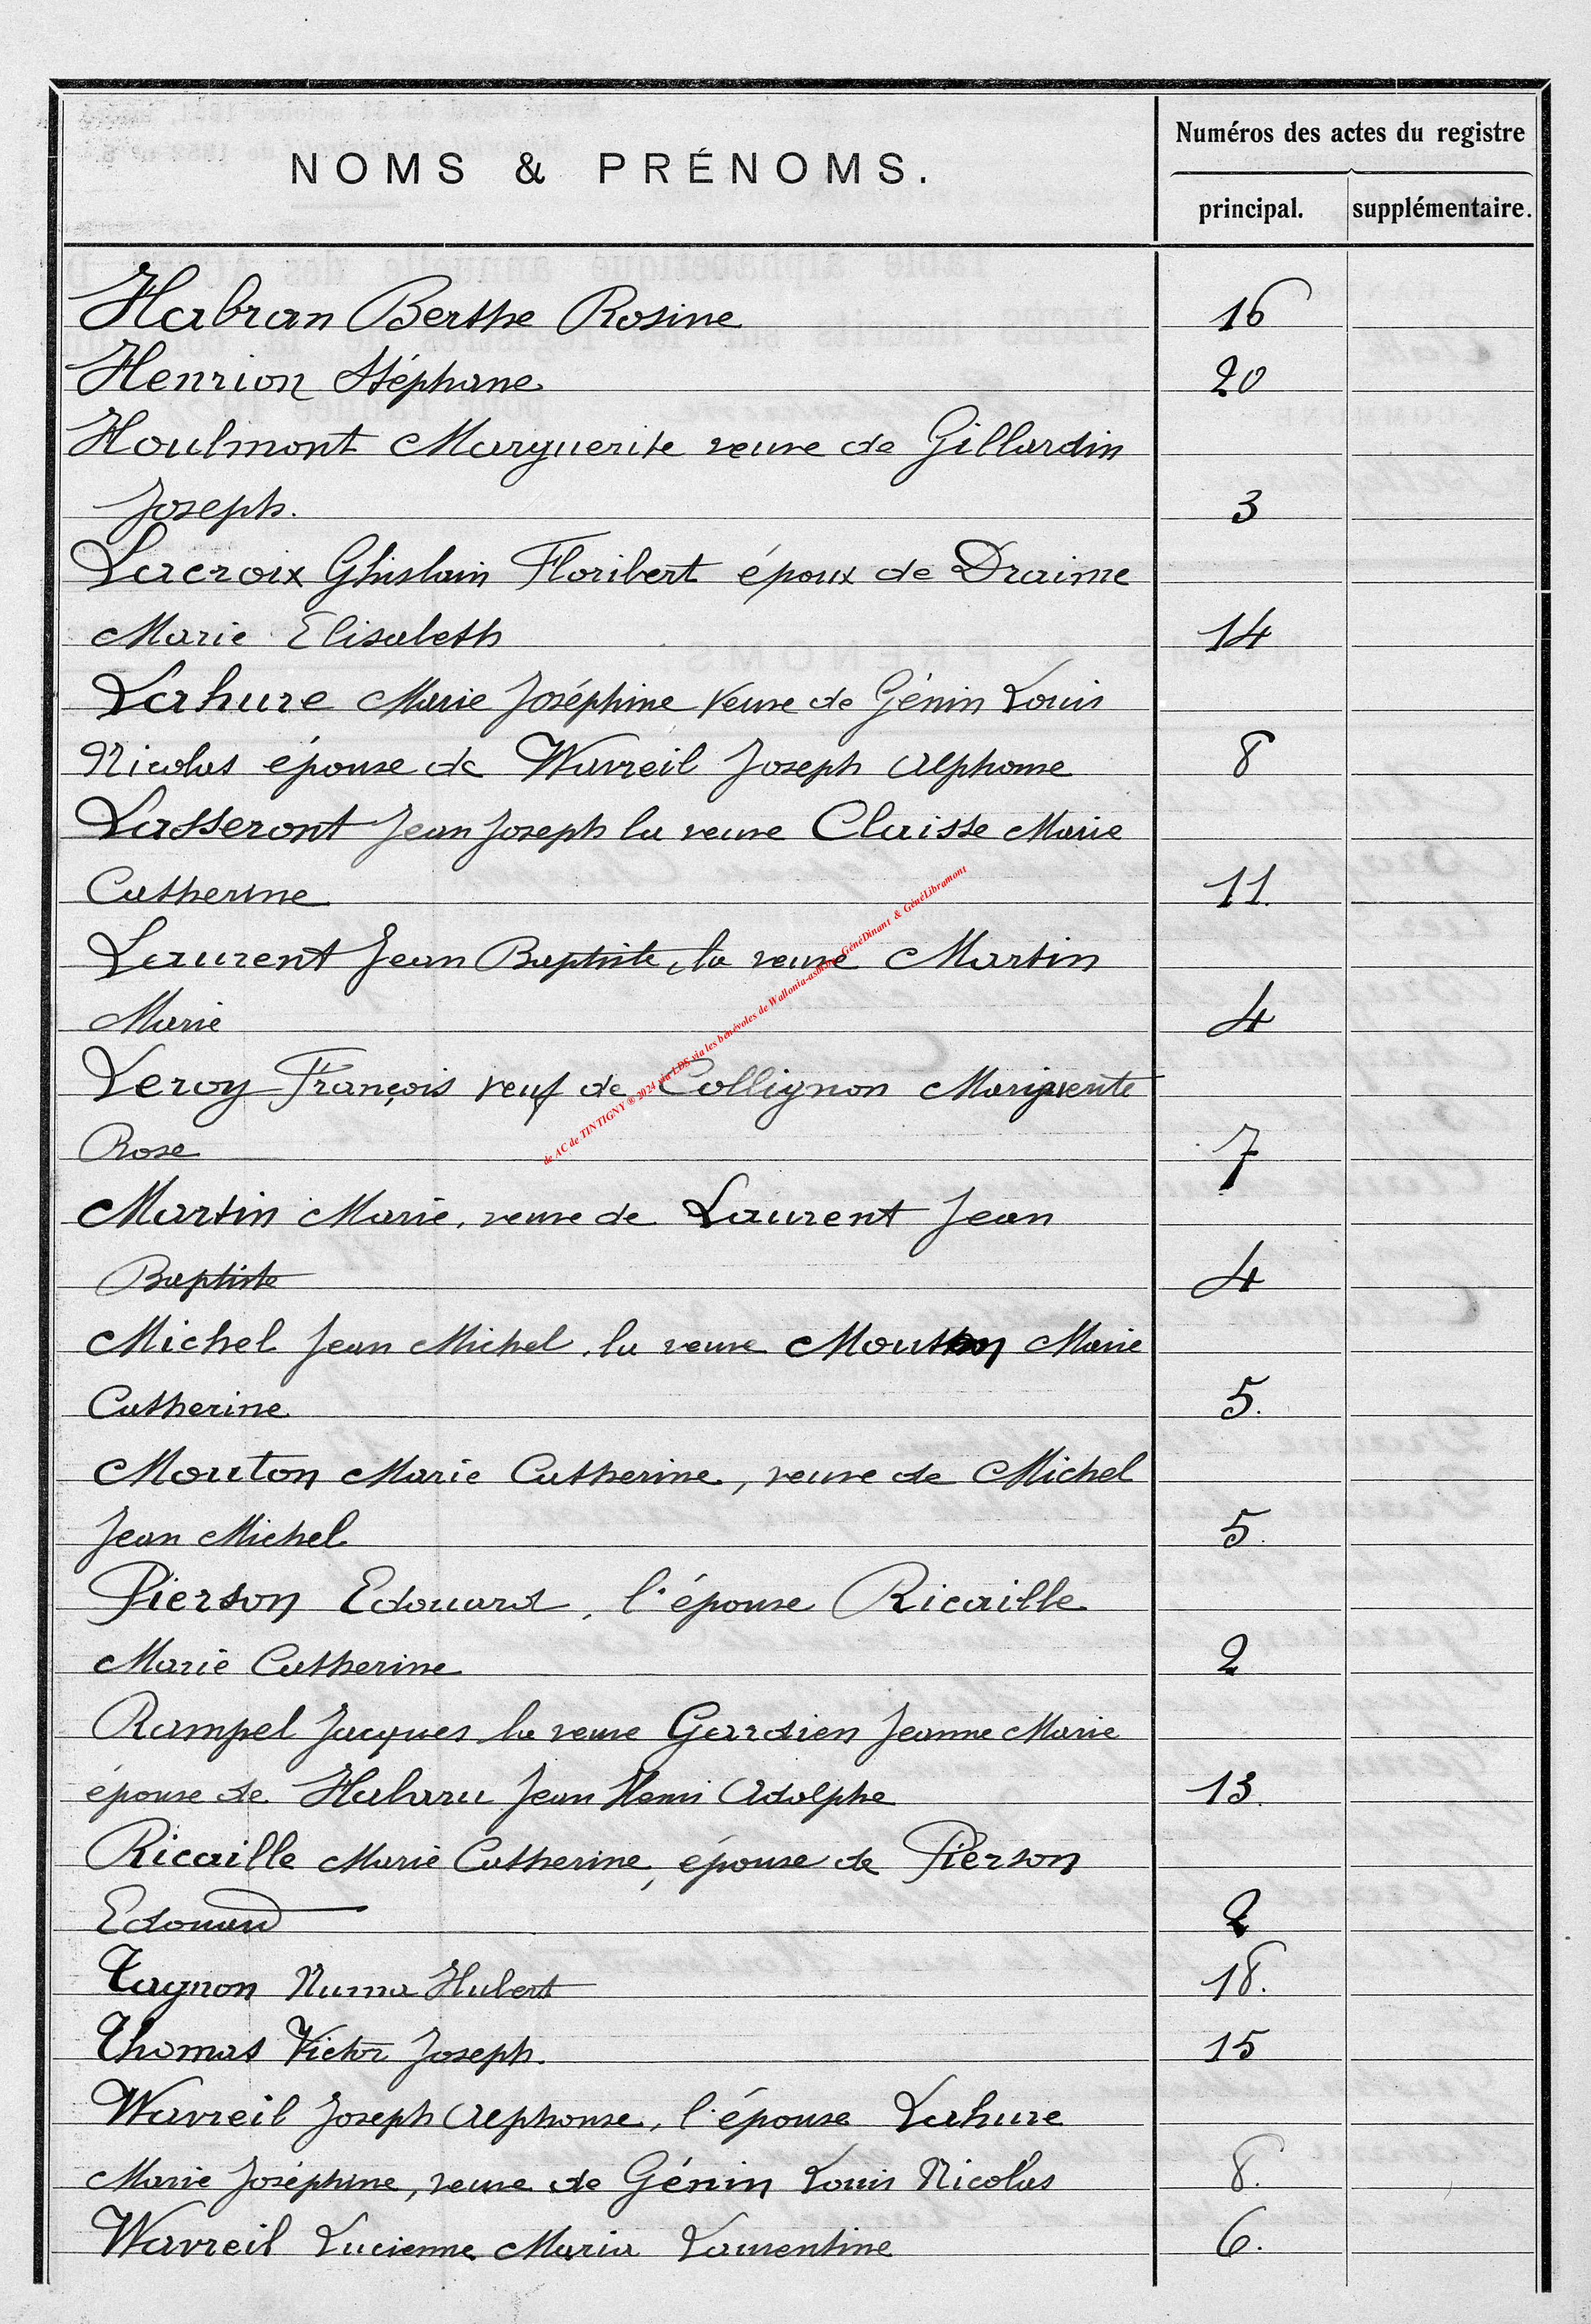 NOMS & PRÉNOMS.
Numéros des actes du registre
principal. supplémentaire.
Habran Berthe Rosine 16
Henrion Stéphane 20
Houlmont Marguerite veuve de Gillardin
Joseph. 3
Lacroix Ghislain Floribert époux de Draime
Marie Elisabeth 14
Lahure Marie Joséphine Veuve de Génin Louis
Nicolas épouse de Wavreil Joseph Alphonse 8
Lasseront Jean Joseph la veuve Claisse Marie
Catherine 11.
Laurent Jean Baptiste, la veuve Martin
Marie 4
Leroy François veuf de Collignon Marguerite
Rose 7
Martin Marie, veuve de Laurent Jean
Baptiste 4
Michel Jean Michel, la veuve Mouton Marie
Catherine 5.
Mouton Marie Catherine, veuve de Michel
Jean Michel 5.
Pierson Edouard, l'épouse Ricaille
Marie Catherine 2
Rampel Jacques la veuve Gardien Jeanne Marie
épouse de Habaru Jean Henri Adolphe 13.
Ricaille Marie Catherine, épouse de Pierson
Edouard 2
Tagnon Numa Hubert 18.
Thomas Victor Joseph. 15
Wavreil Joseph Alphonse, l'épouse Lahure
Marie Joséphine, veuve de Génin Louis Nicolas 8.
Wavreil Lucienne Maria Laurentine 6.
de AC de TINTIGNY ® 2024 via LDS via les bénévoles de Wallonia-asbl GénéDinant & GénéLibramont